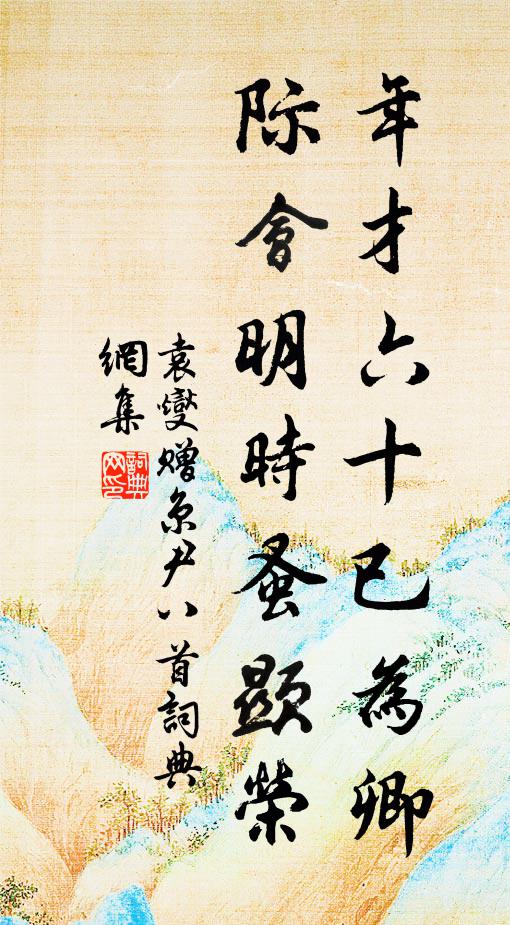 年才六十已為卿
際會明時蚤顯榮
袁燮贈京尹八首詞典
網集
詞典網印